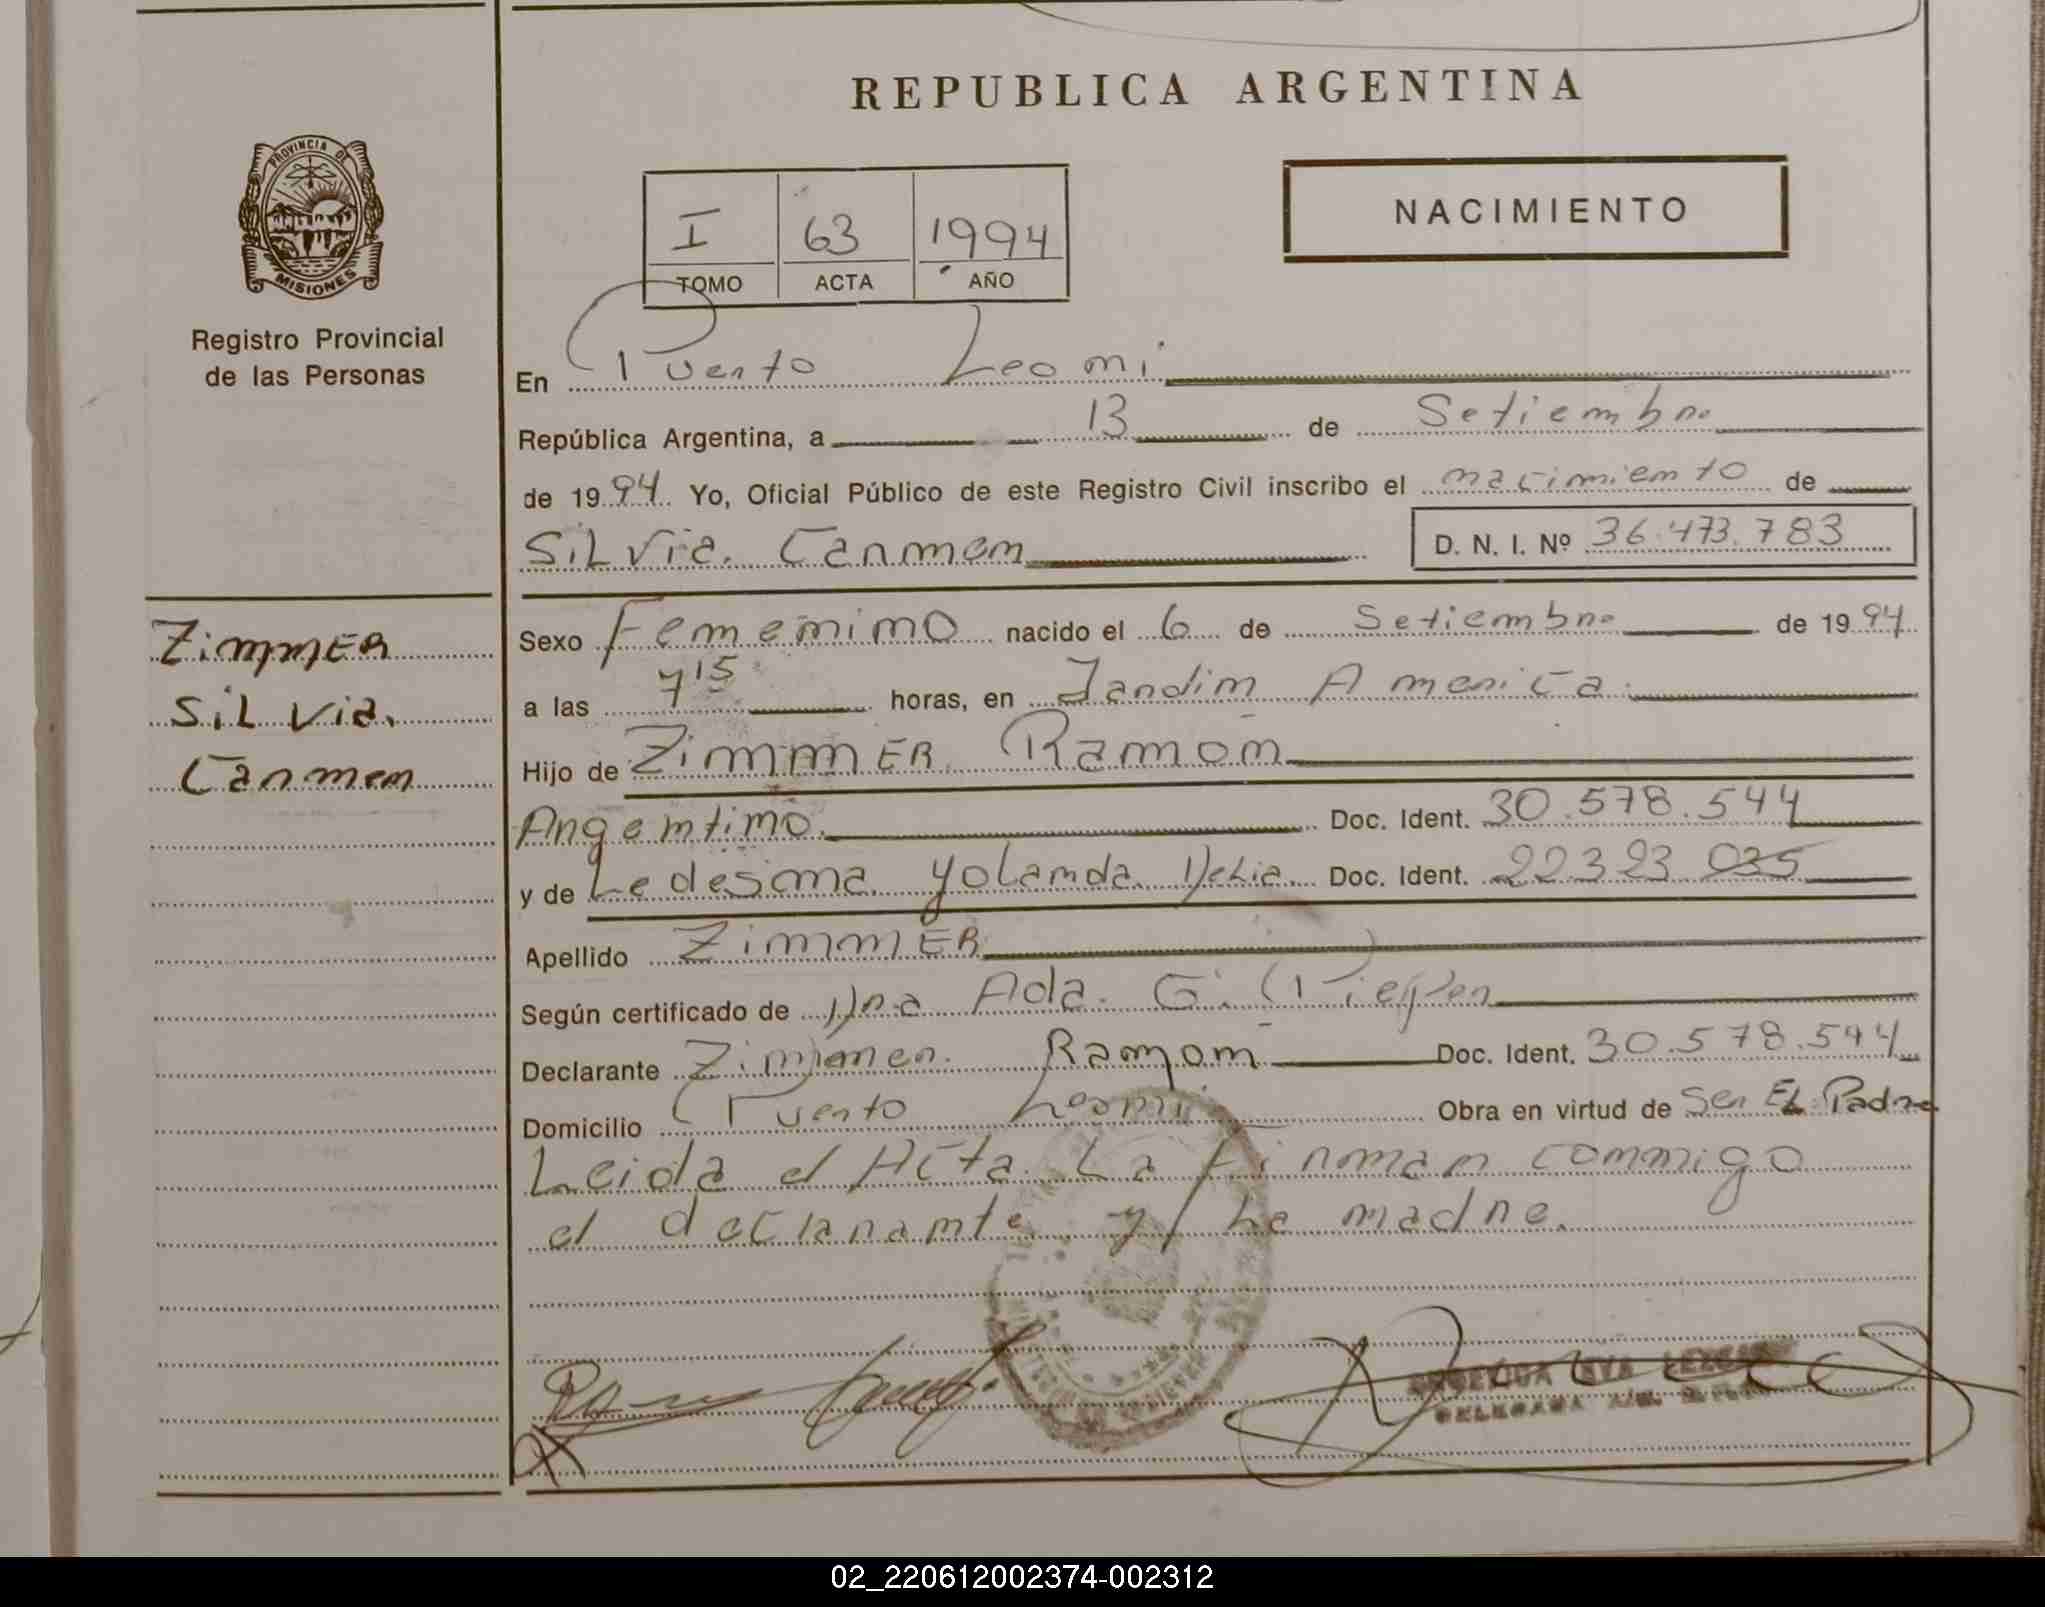 REPUBLICA ARGENTINA
PROVINCIA DE
MISIONES
Registro Provincial
de las Personas
I 63 1994
TOMO ACTA AÑO
NACIMIENTO
En Puerto Leoni
República Argentina, a 13 de Setiembre
de 1994 Yo, Oficial Público de este Registro Civil inscribo el nacimiento de
Silvia Carmen D. N. I. Nº 36.473.783
Zimmer
Silvia
Carmen
Sexo Femenino nacido el 6 de Setiembre de 1994
a las 7 15 horas, en Jardin America
Hijo de Zimmer Ramon
Argentino Doc. Ident. 30.578.544
y de Ledesma Yolanda Delia Doc. Ident. 22323 035
Apellido Zimmer
Según certificado de Dra Ada G.
Declarante Zimmer Ramon Doc. Ident. 30.578.544
Domicilio Puerto Leoni Obra en virtud de Ser El Padre
Leida el Acta La Firman conmigo
el declarante y La madre.
02_220612002374-002312